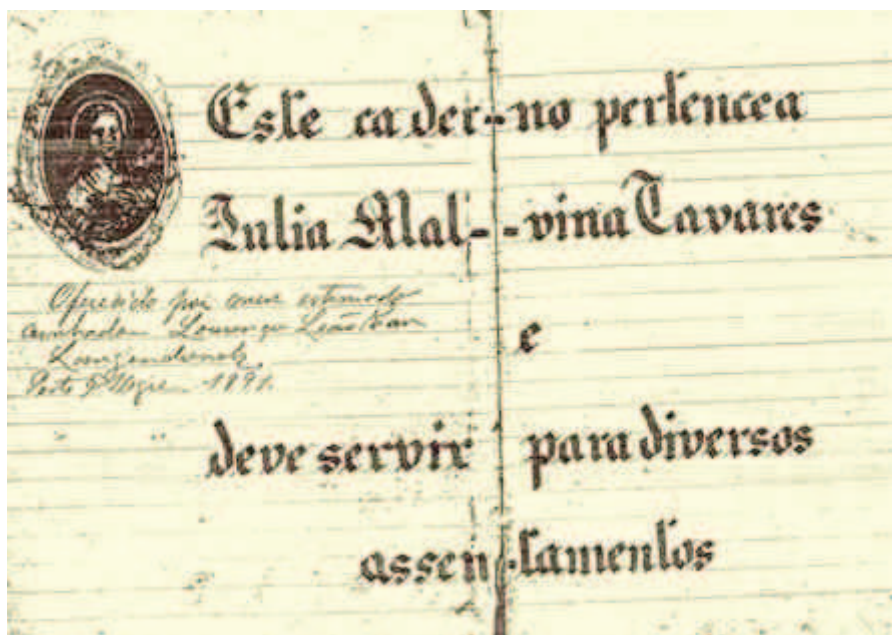 Este cader-no pertence a
Julia Mal--vina Tavares
Offerecido por meu estimado
cunhado Lourenço Leão Van
Langendonck
Porto Alegre 1891.
e
deve servir para diversos
assen-tamentos